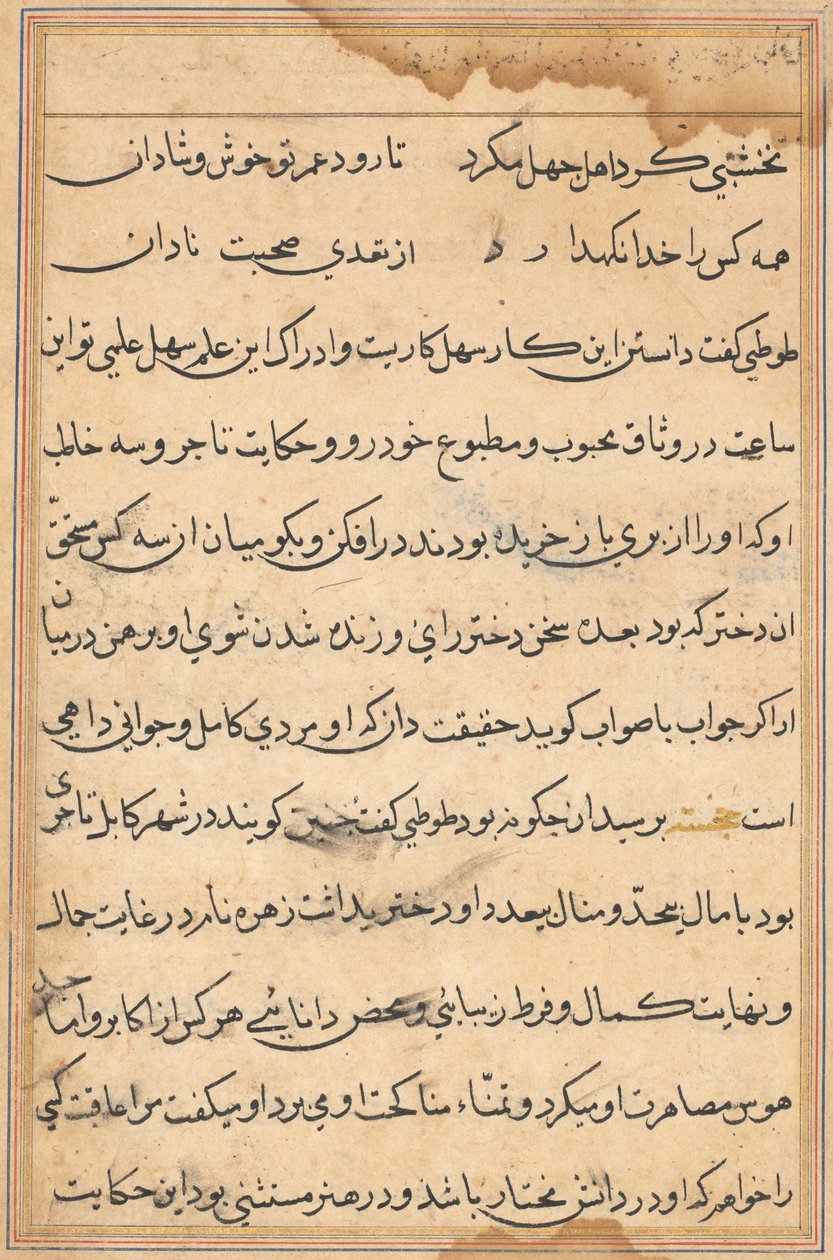 نخشبي كرد اهل جهل مكرد تا رود عمر تو خوش و شادان
همه كس را خدا نكهدارد از تعدي صحبت نادان
طوطي كفت دانستن اين كار سهل كاريست و ادراك اين علم سهل علمي تو اين
ساعت در وثاق محبوب و مطبوع خود رو و حكايت تاجر و سه خاطب
او كه او را از پري باز خريده بودند در افكن و بكو ميان ان سه كس مستحقّ
ان دختر كه بود بعده سخن دختر راي و زنده شدن شوي او و برهمن در ميان
ار اكر جواب با صواب كويد حقيقت دان كه او مردي كامل و جواني داهي
است خجسته پرسيد ان چكونه بود طوطي كفت چنين كويند در شهر كابل تاجری
بود با مال بيحدّ و منال بيعدد او دختريداشت زهره نام در غايت جمال
و نهايت كمال و فرط زيبائي و محض دانائي هر كس از اكابر و اماجد
هوس مصاهرت او ميكرد و تمنّاء مناكحت او مي برد او ميكفت مرا عاقبت كسي
را خواهم كه او در دانش مختار باشد و در هنر مستثني بود اين حكايت